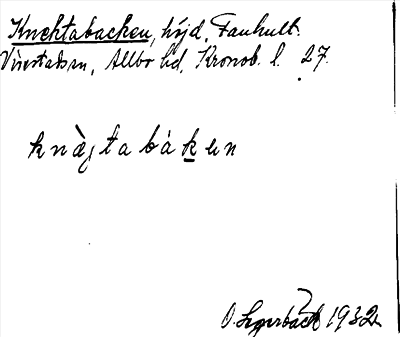 Knektabacken, höjd, Fanhult.
Virestads sn, Allbo hd, Kronob. l. 27.
knæ̀jtabáken
O. Lagerbäck 1932